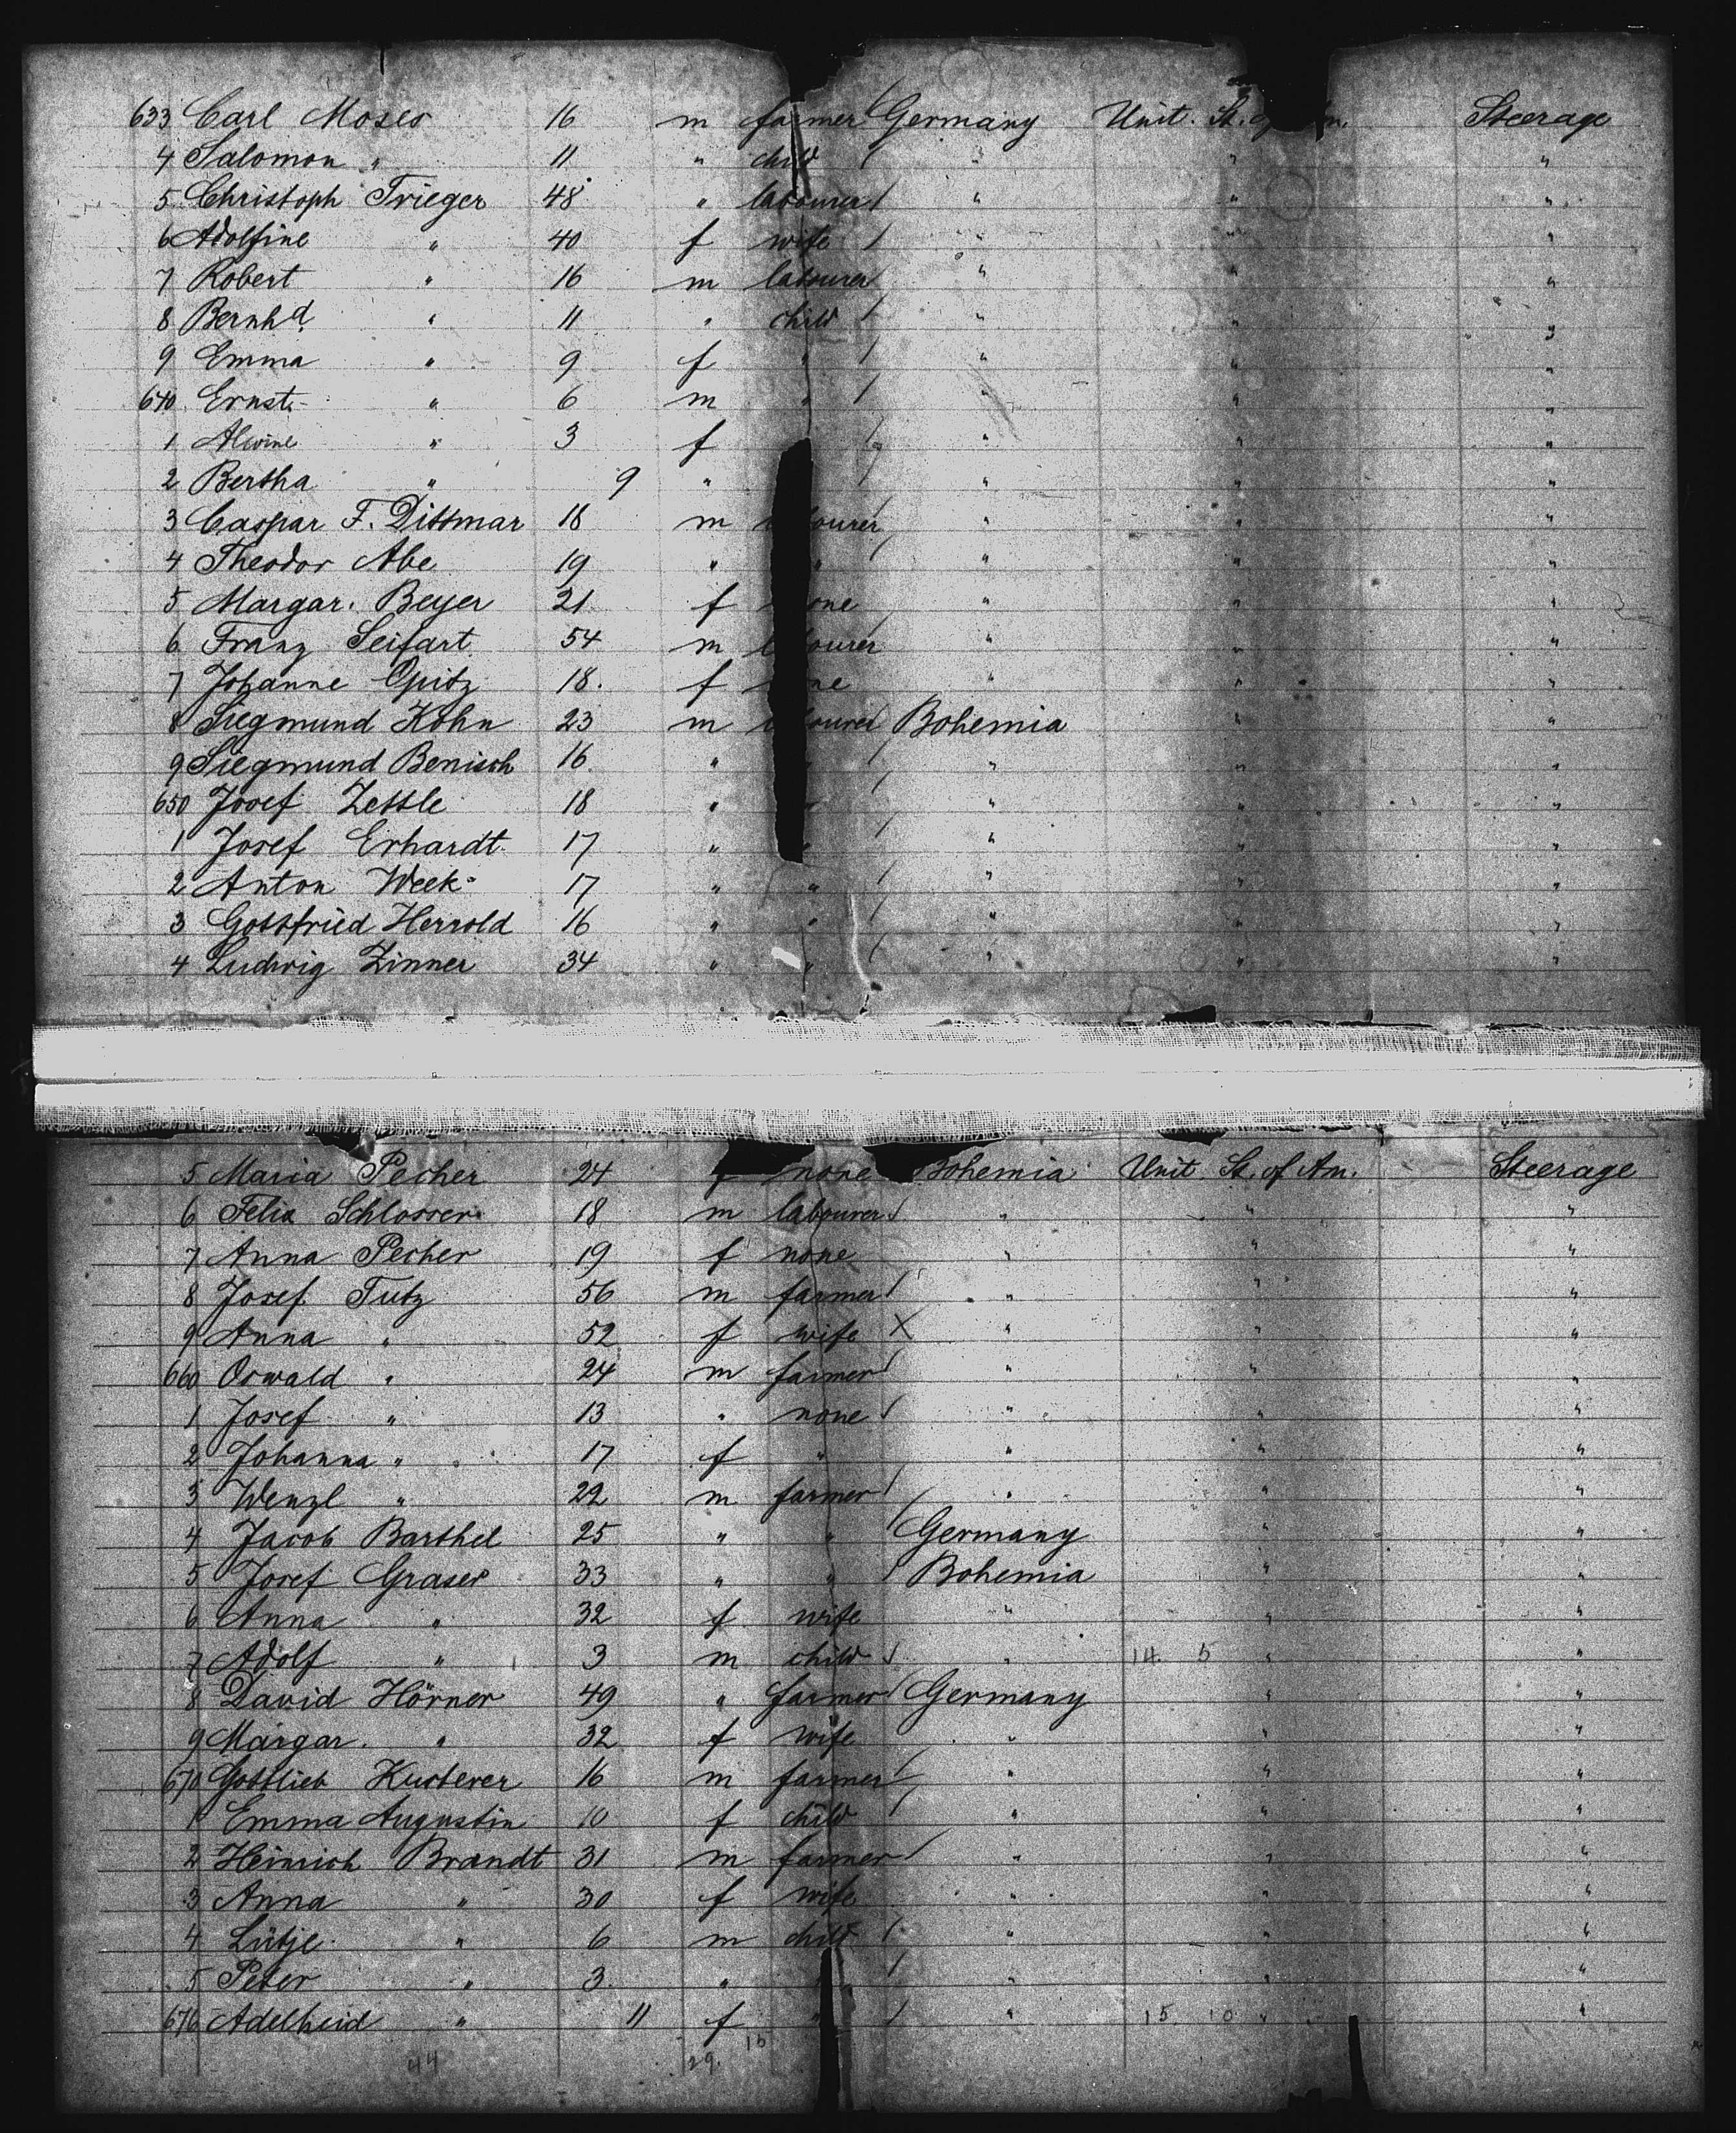 633 Carl Moses 16 m farmer Germany Unit. St. Steerage
4 Salomon " 11 " child " " "
5 Christoph Trieger 48 " labourer " " "
6 Adolfine " 40 f wife " " "
7 Robert " 16 m labourer " " "
8 Bernhd. " 11 " child " " "
9 Emma " 9 f " " " "
640 Ernst " 6 m " " " "
1 Alwine " 3 f " " "
2 Bertha " 9 " " " "
3 Caspar F. Dittmar 18 m labourer " " "
4 Theodor Abe 19 " " " " "
5 Margar. Beyer 21 f none " " "
6 Franz Seifart 54 m labourer " " "
7 Johanne Opitz 18. f none " " "
8 Siegmund Kohn 23 m labourer Bohemia " "
9 Siegmund Benisch 16 " " " " "
650 Josef Zettle 18 " " " " "
1 Josef Erhardt 17 " " " " "
2 Anton Week 17 " " " " "
3 Gottfried Herrold 16 " " " " "
4 Ludwig Zinner 34 " " " " "
5 Maria Pecher 24 f none Bohemia Unit. St. of Am. Steerage
6 Felix Schlosser 18 m labourer " " "
7 Anna Pecher 19 f none " " "
8 Josef Tutz 56 m farmer " " "
9 Anna " 52 f wife X " " "
660 Oswald " 24 m farmer " " "
1 Josef " 13 " none " " "
2 Johanna " 17 f " " " "
3 Wenzl " 22 m farmer " " "
4 Jacob Barthel 25 " " Germany " "
5 Josef Graser 33 " " Bohemia " "
6 Anna " 32 f wife " " "
7 Adolf " 3 m child " 14. 5 " "
8 David Hörner 49 " farmer Germany " "
9 Margar. " 32 f wife " " "
670 Gottlieb Kusterer 16 m farmer " " "
1 Emma Augustin 10 f child " " "
2 Heinrich Brandt 31 m farmer " " "
3 Anna " 30 f wife " " "
4 Lütje " 6 m child " " "
5 Peter " 3. " " " " "
676 Adelheid " 11 f " " 15 10 " "
44 29. 15